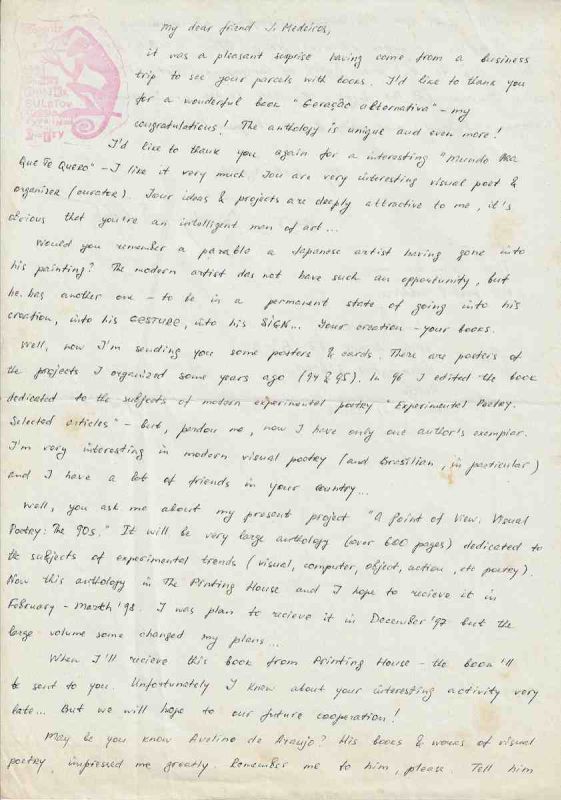 My dear friend J. Medeiros,
it was a pleasant surprise having come from a business
trip to see your parcels with books. I'd like to thank you
for a wonderful book "Geração alternativa" - my
congratulations! The anthology is unique and even more!
I'd like to thank you again for a interesting "Mundo
Que Te Quero" - I like it very much. You are very interesting visual poet &
organiser (curator). Your ideas & projects are deeply attractive to me, it's
obvious that you're an intelligent man of art...
Would you remember a parable a Japanese artist having gone into
his painting? The modern artist das not have such an opportunity, but
he has another one - to be in a permanent state of going into his
creation, into his GESTURE, into his SIGN... Your creation - your books.
Well, now I'm sending you some posters & cards. There are posters of
the projects I organized some years ago (94 & 95). In 96 I edited the book
dedicated to the subjects of modern experimental poetry "Experimental Poetry.
Selected articles" - but, pardon me, now I have only one author's exemplar.
I'm very interesting in modern visual poetry (and Brasilian, in particular)
and I have a lot of friends in your country...
Well, you ask me about my present project "A Point of View. Visual
Poetry: The 90s." It will be very large anthology (over 600 pages) dedicated to
the subjects of experimental trends (visual, computer, object, action, etc poetry).
Now this anthology in The Printing House and I hope to recieve it in
February - March '98. I was plan to recieve it in December '97 but the
large volume some changed my plans...
When I'll recieve this book from Printing House - the book 'll
be sent to you. Unfortunately I knew about your interesting activity very
late... But we will hope to our future cooperation!
May be you know Avelino de Araujo? His books & works of visual
poetry impressed me greatly. Remember me to him, please. Tell him